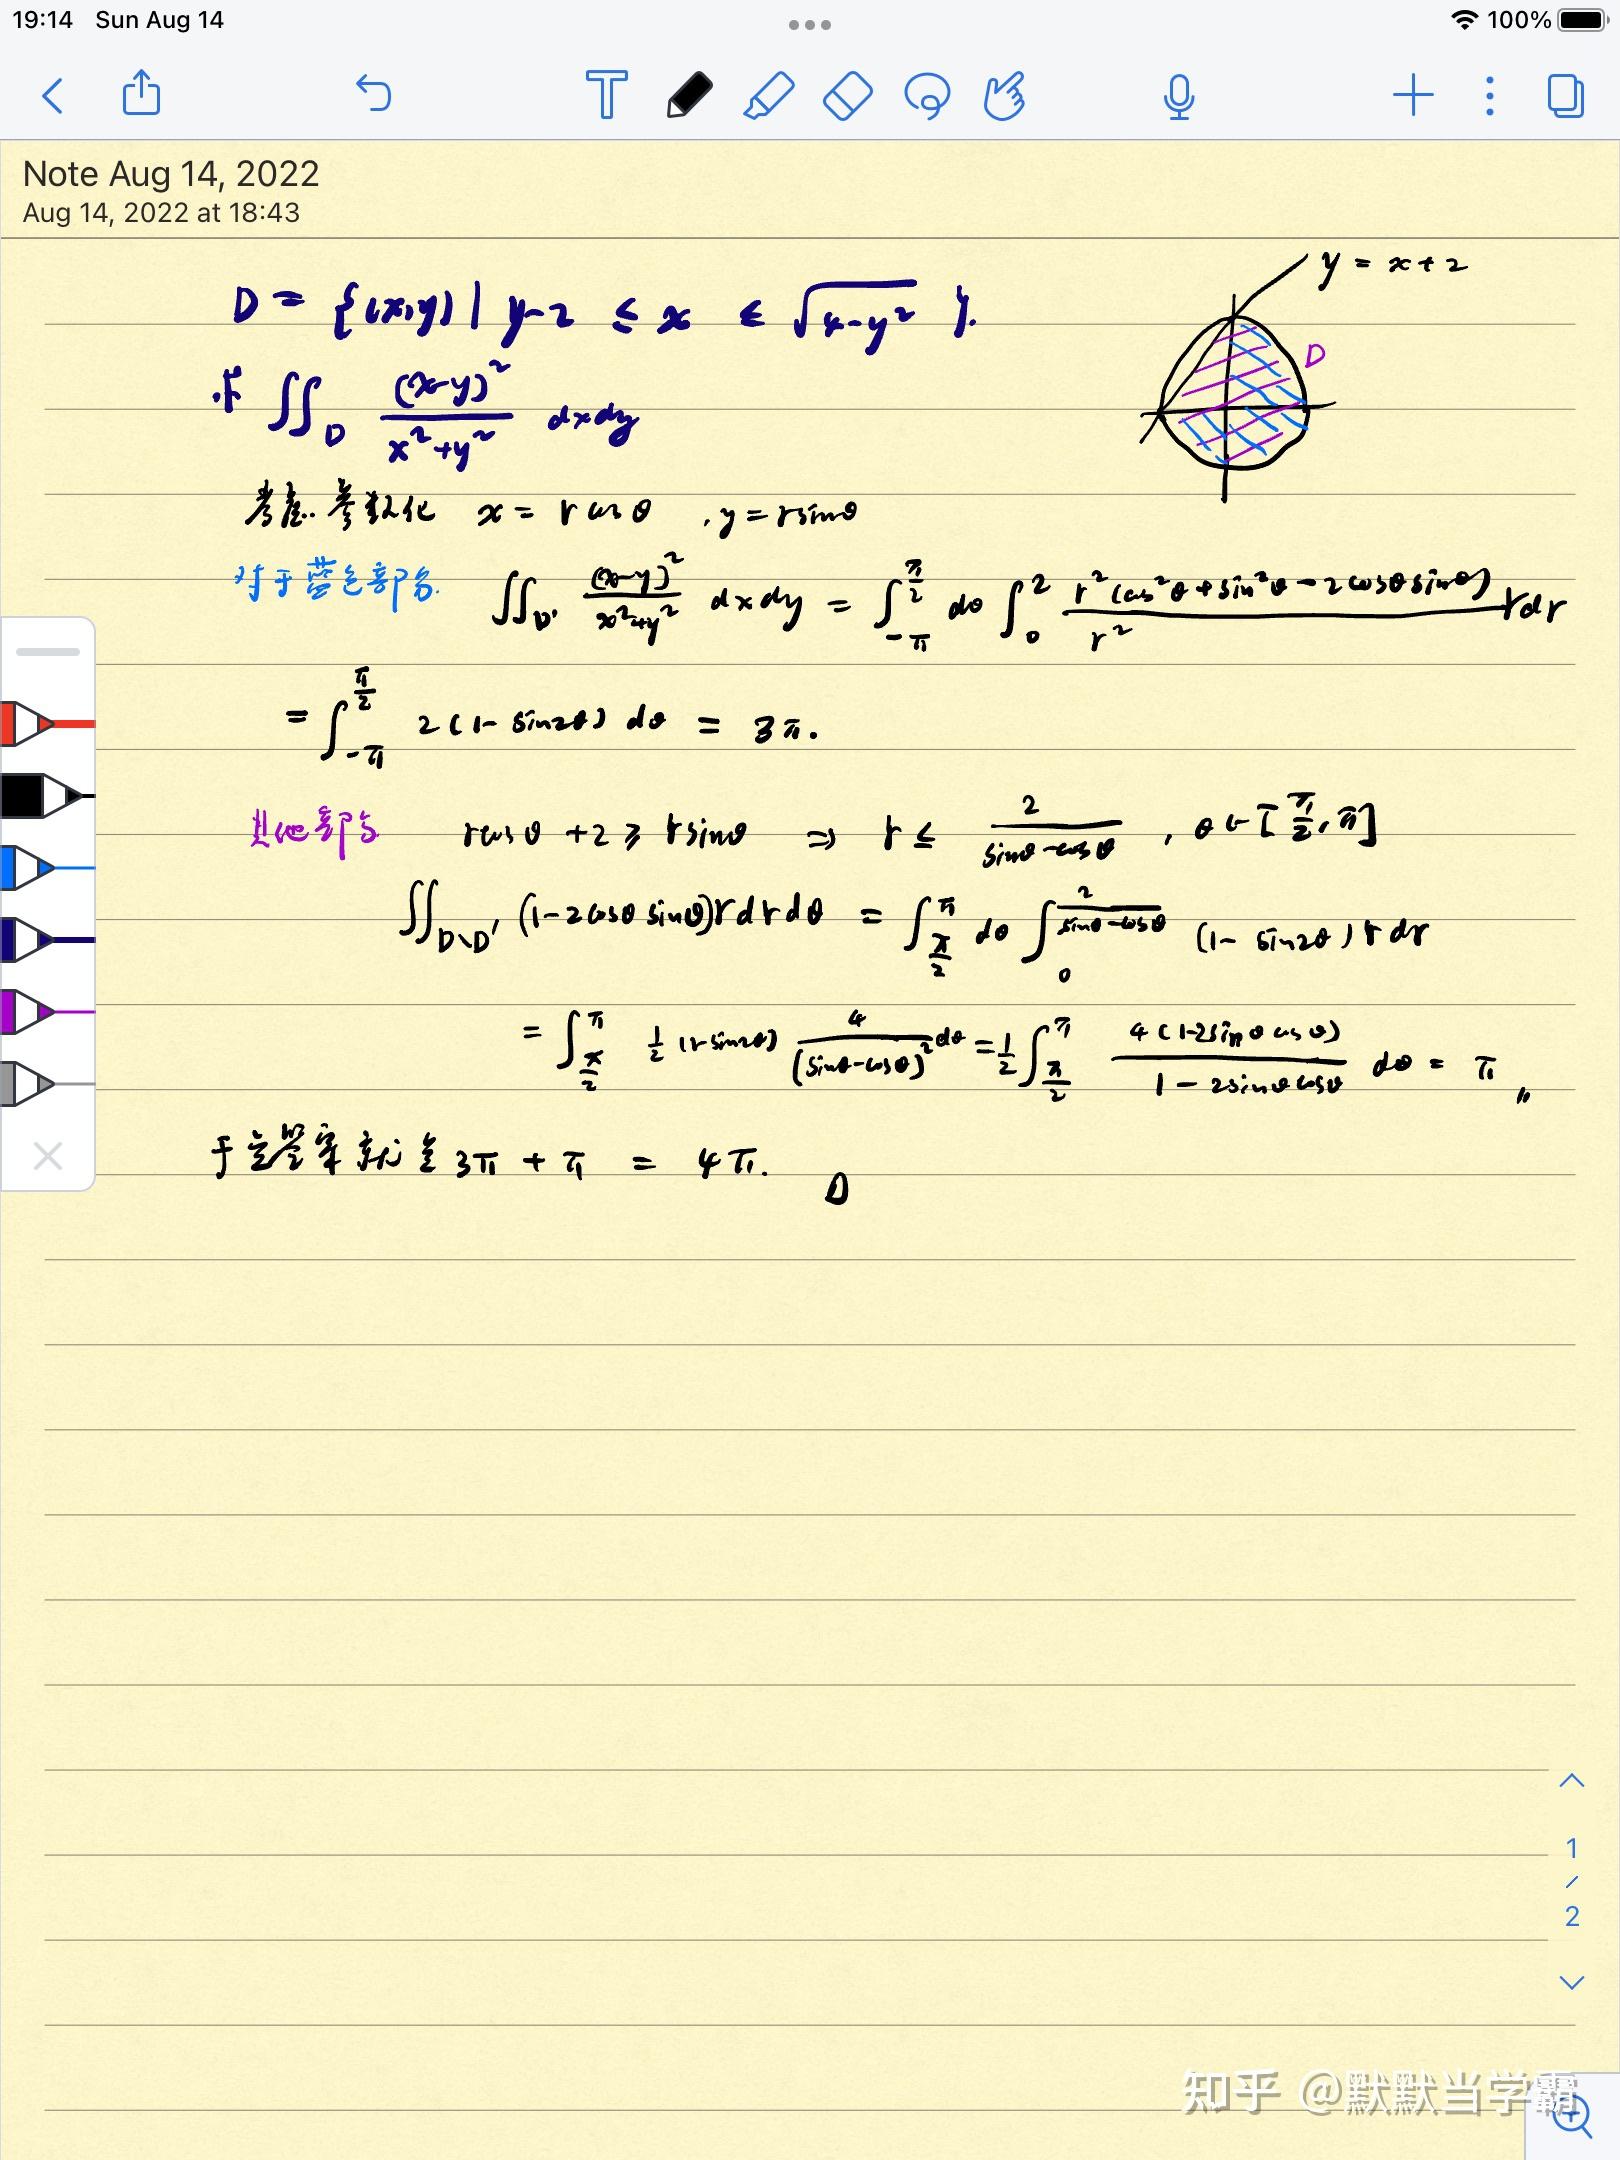 19:14 Sun Aug 14 100%
T
Note Aug 14, 2022
Aug 14, 2022 at 18:43
y = x+2
D = {(x,y) | y-2 ≤ x ≤ √(4-y²) }.
D
求 ∬_D (x-y)²/(x²+y²) dxdy
考虑.. 参数化 x = r cosθ , y = r sinθ
对于蓝色部分. ∬_D' (x-y)²/(x²+y²) dxdy = ∫_{-π}^{π/2} dθ ∫_0^2 r²(cos²θ + sin²θ - 2cosθsinθ)/r² rdr
= ∫_{-π}^{π/2} 2(1- sin2θ) dθ = 3π.
其他部分 rcosθ +2 ≥ rsinθ ⇒ r ≤ 2/(sinθ-cosθ) , θ∈[π/2, π]
∬_{D\D'} (1-2cosθ sinθ)rdrdθ = ∫_{π/2}^{π} dθ ∫_0^{2/(sinθ-cosθ)} (1- sin2θ) r dr
= ∫_{π/2}^{π} 1/2 (1-sin2θ) 4/(sinθ-cosθ)² dθ = 1/2 ∫_{π/2}^{π} 4(1-2sinθcosθ)/(1-2sinθcosθ) dθ = π
于是答案就是 3π + π = 4π. D
1
/
2
知乎 @默默当学霸